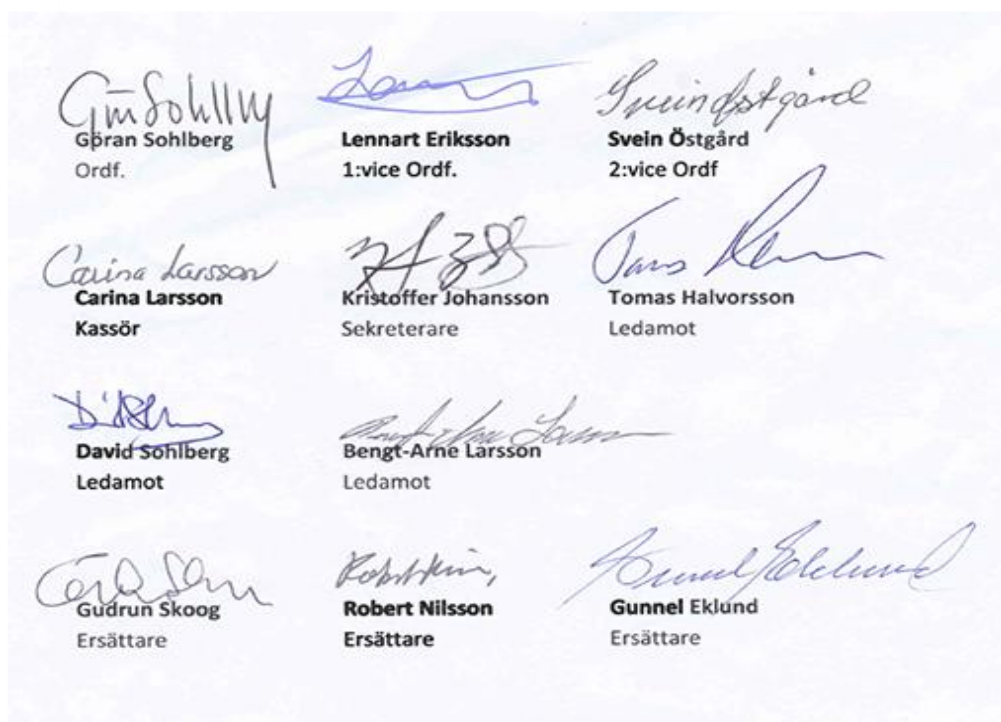 Göran Sohlberg
Ordf.
Lennart Eriksson
1:vice Ordf.
Svein Östgård
Svein Östgård
2:vice Ordf
Carina Larsson
Carina Larsson
Kassör
Kristoffer Johansson
Sekreterare
Tomas Halvorsson
Ledamot
David Sohlberg
Ledamot
Bengt-Arne Larsson
Ledamot
Gudrun Skoog
Ersättare
Robert Nilsson
Ersättare
Gunnel Eklund
Gunnel Eklund
Ersättare